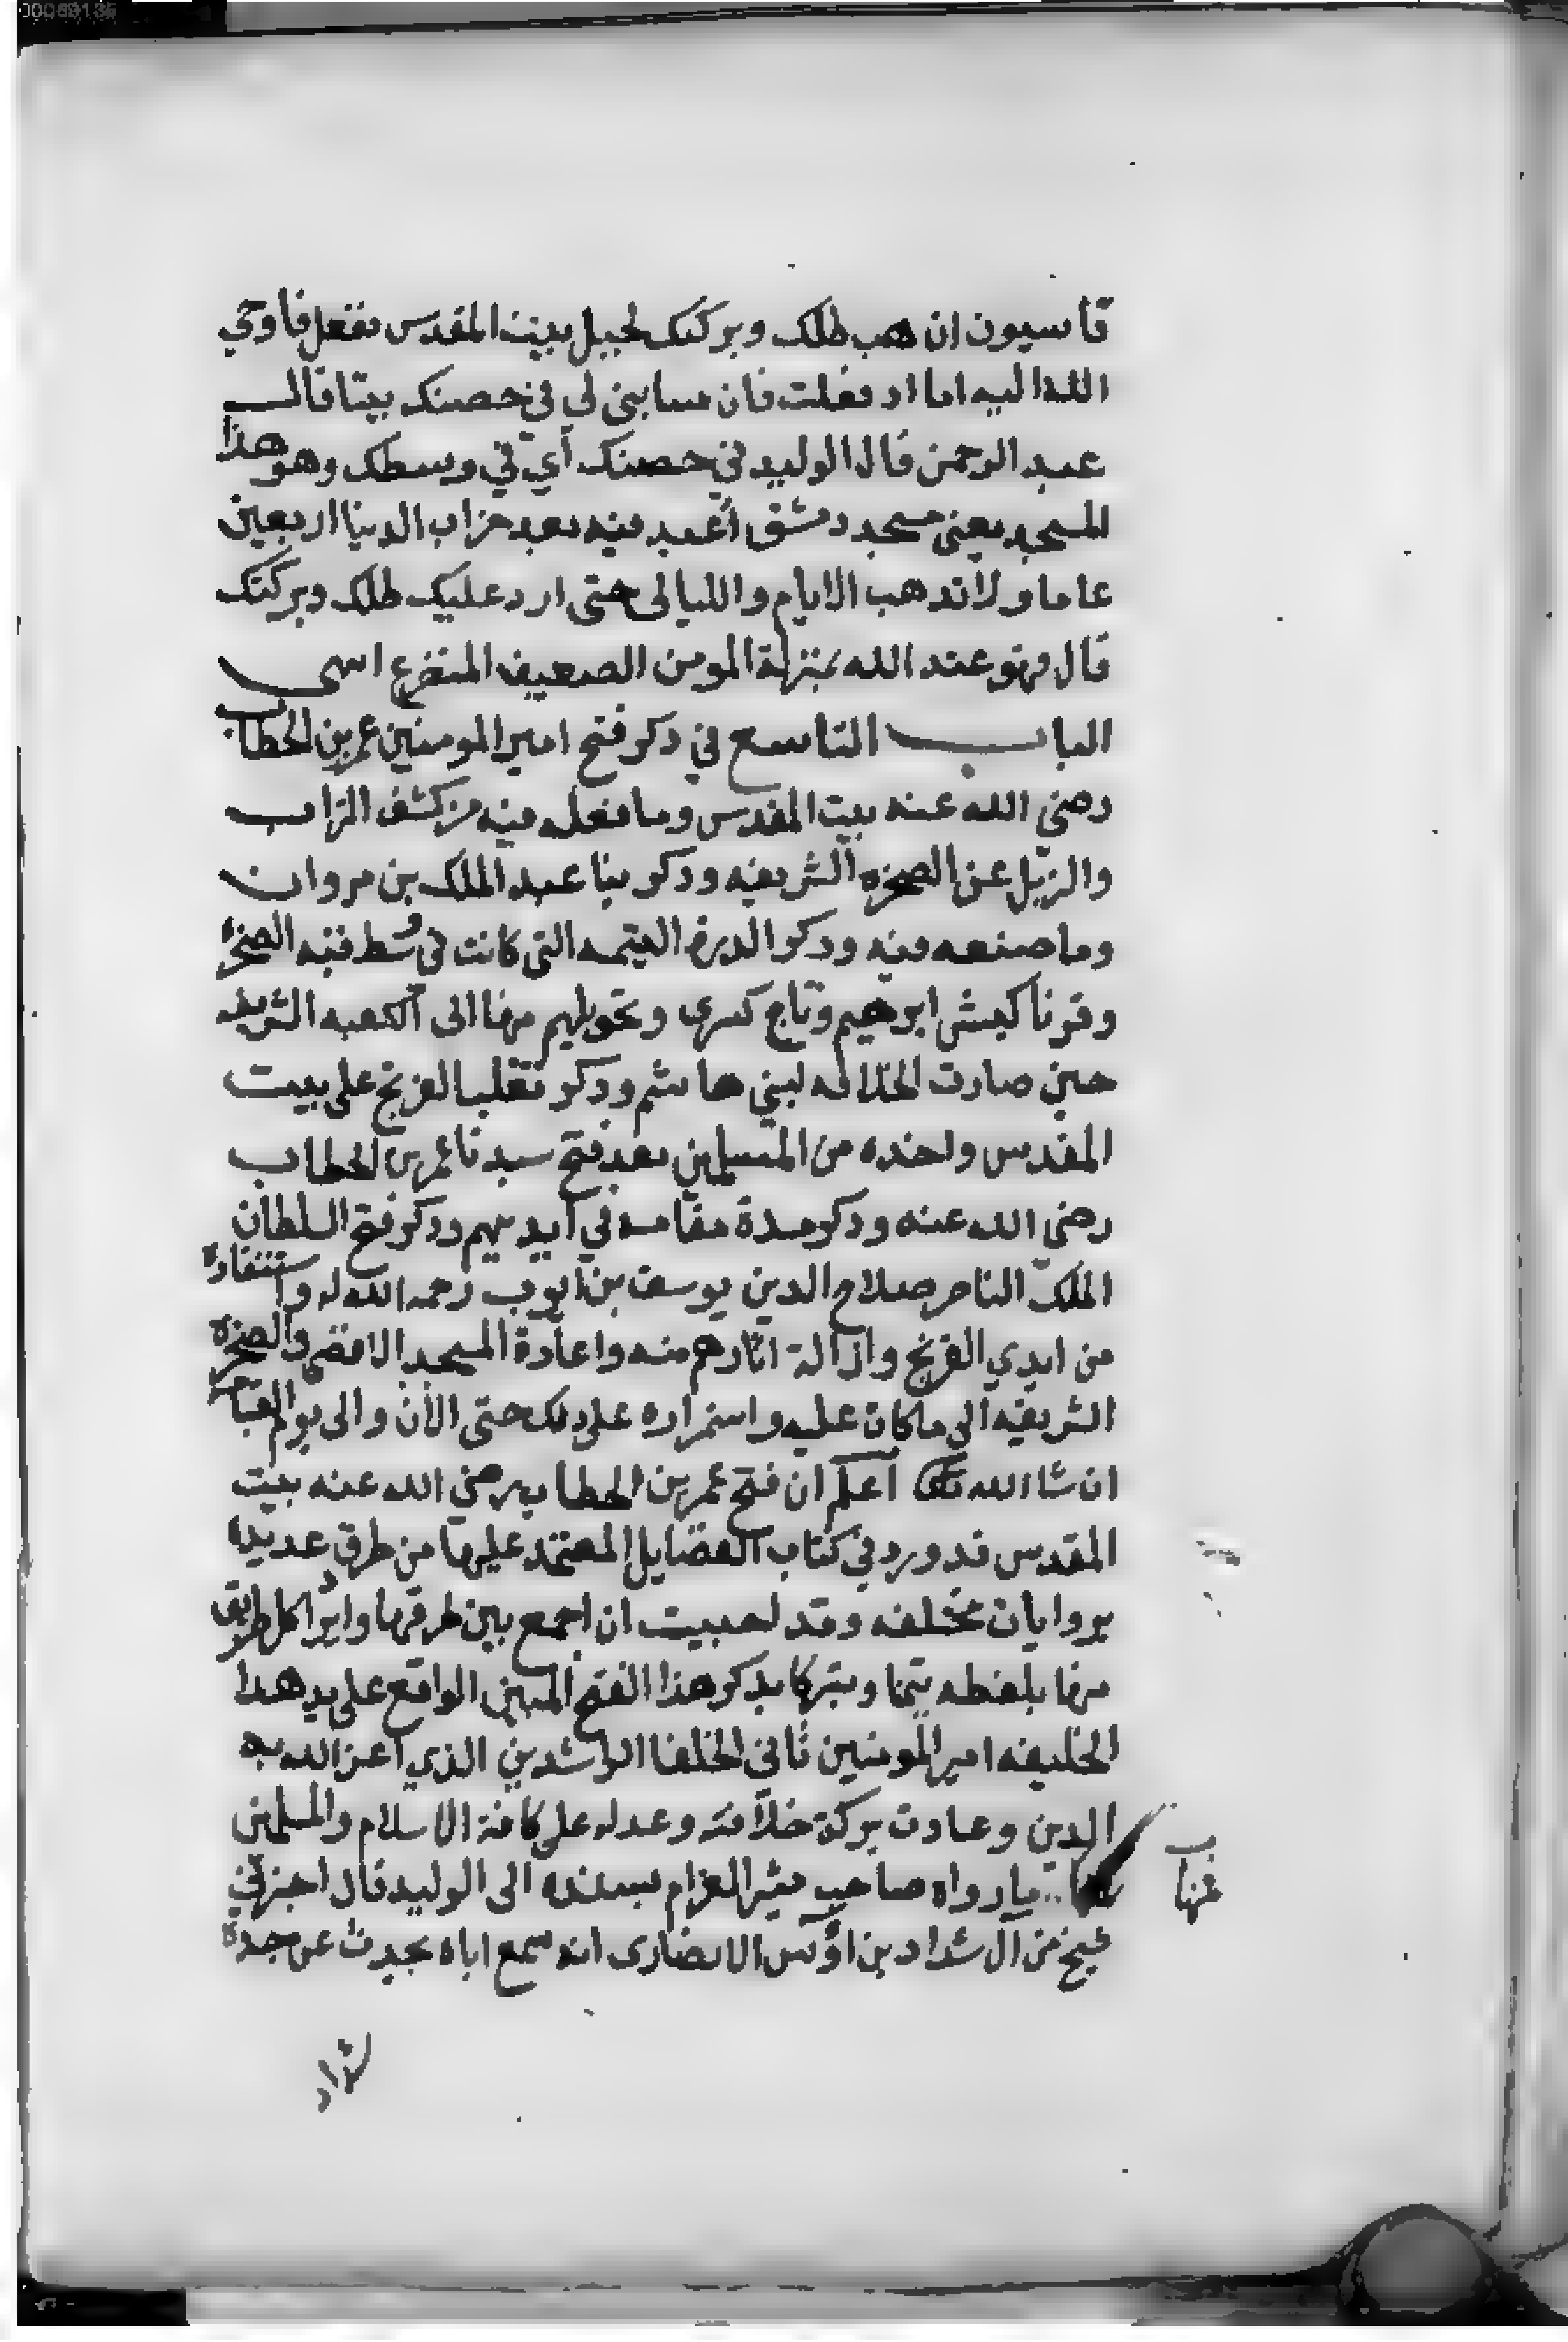 00069135
قاسيون ان هب ظلك وبركتك لجبل بيت المقدس ففعل فاوحي
الله اليه اما اذ فعلت فان سابني لي في حصنك بيتا قال
عبد الرحمن قال الوليد في حصنك أي في وسطك وهو هذا
المسجد يعني مسجد دمشق أعبد فيه بعد خراب الدنيا اربعين
عاما ولا تذهب الايام والليالي حتى ارد عليك ظلك وبركتك
قال فهو عند الله بمنزلة المومن الضعيف المتضرع انتهى
الباب التاسع في ذكر فتح امير المومنين عمر بن الخطاب
رضي الله عنه بيت المقدس وما فعله فيه من كشف التراب
والزبل عن الصخره الشريفه وذكر بنا عبد الملك بن مروان
وما صنعه فيه وذكر الدرة اليتيمه التي كانت في وسط قبه الصخرة
وقرنا كبش ابرهيم وتاج كسرى وتحويلهم منها الى الكعبه الشريفه
حين صارت الخلافه لبني هاشم وذكر تغلب الفرنج على بيت
المقدس واخذه من المسلمين بعد فتح سيدنا عمر بن الخطاب
رضي الله عنه وذكر مدة مقامه في أيديهم وذكر فتح السلطان
الملك الناصر صلاح الدين يوسف بن ايوب رحمه الله له واستنقاذه
من ايدي الفرنج وازالة اثارهم منه واعادة المسجد الاقصى والصخره
الشريفه الي ما كان عليه واستمراره على ذلك حتى الأن والى يوم القيامة
ان شا الله تعالى أعلم ان فتح عمر بن الخطاب رضي الله عنه بيت
المقدس قد ورد في كتاب الفضايل المعتمد عليها من طرق عديدة
بروايات مختلفه وقد احببت ان اجمع بين طرقها وايراد كل طريق
منها بلفظه تيمنا وتبركا بذكر هذا الفتح المبين الواقع على يد هذا
الخليفه امير المومنين ثاني الخلفا الراشدين الذي اعز الله به
الدين وعادت بركة خلافته وعدله على كافة الاسلام والمسلمين
فمنها ما رواه صاحب مثير الغرام بسنده الى الوليد قال اخبرني
شيخ من آل شداد بن اؤس الانصاري انه سمع اباه يحدث عن جده
شداد